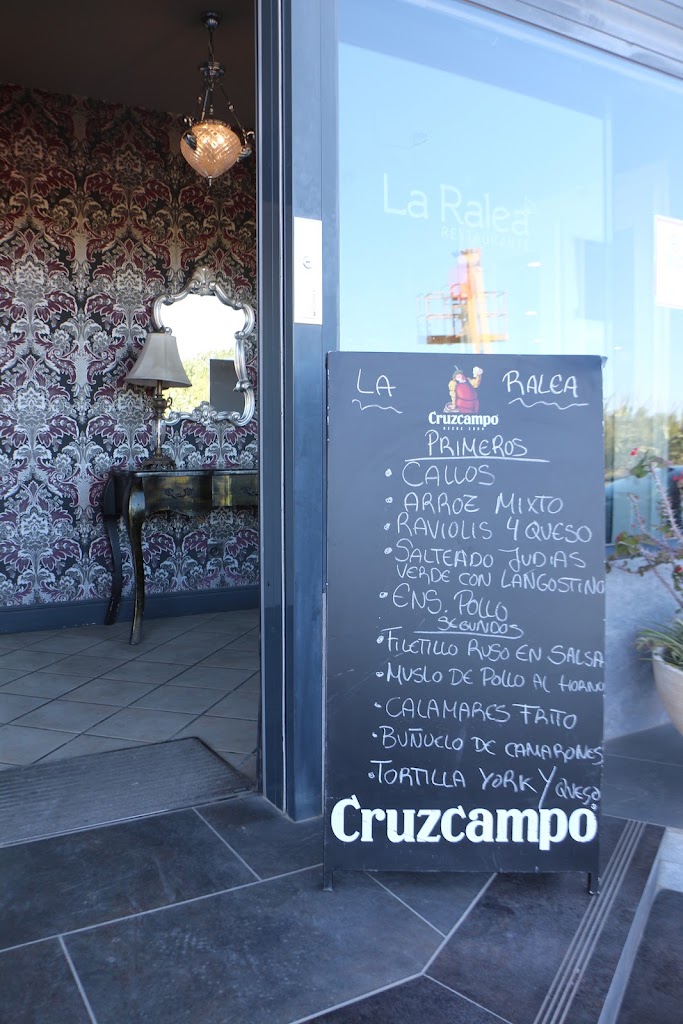 La Ralea
RESTAURANTE
LA RALEA
Cruzcampo
DESDE 1904
PRIMEROS
• CALLOS
• ARROZ MIXTO
• RAVIOLIS 4 QUESO
• SALTEADO JUDIAS
VERDE CON LANGOSTINO
• ENS. POLLO
SEGUNDOS
• FILETILLO RUSO EN SALSA
• MUSLO DE POLLO AL HORNO
• CALAMARES FRITO
• BUÑUELO DE CAMARONES
• TORTILLA YORK Y QUESO
Cruzcampo